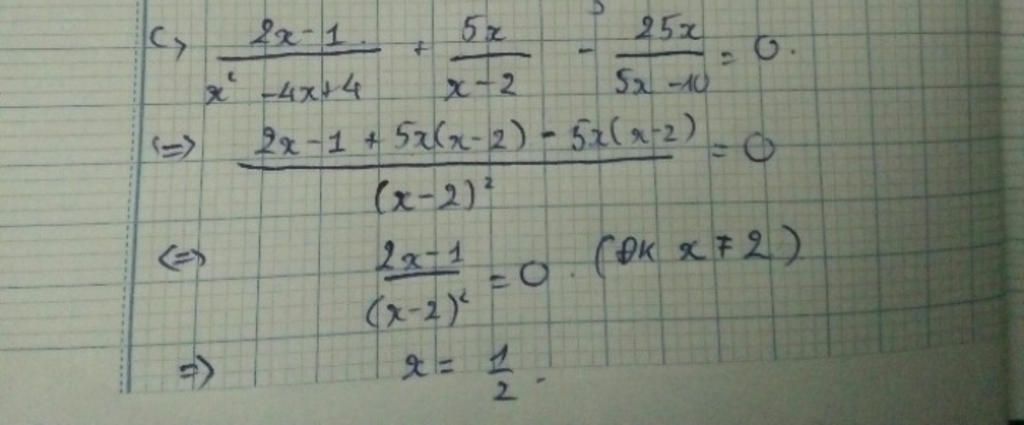 c, (2x-1)/(x² -4x+4) + 5x/(x-2) - 25x/(5x-10) = 0.
<=> (2x-1 + 5x(x-2) - 5x(x-2))/(x-2)² = 0
<=> (2x-1)/(x-2)² = 0. (ĐK x ≠ 2)
=> x = 1/2.